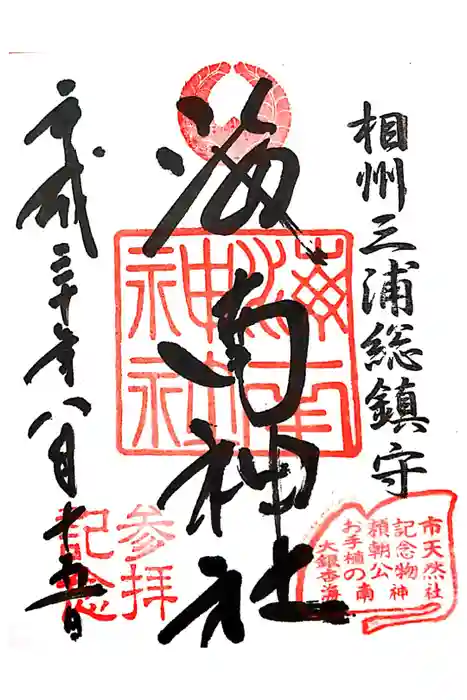 相州三浦総鎮守
海南神社
平成三十年八月十五日
海南
神社
参拝
記念
市天然
記念物
頼朝公
お手植の
大銀杏
海南神社